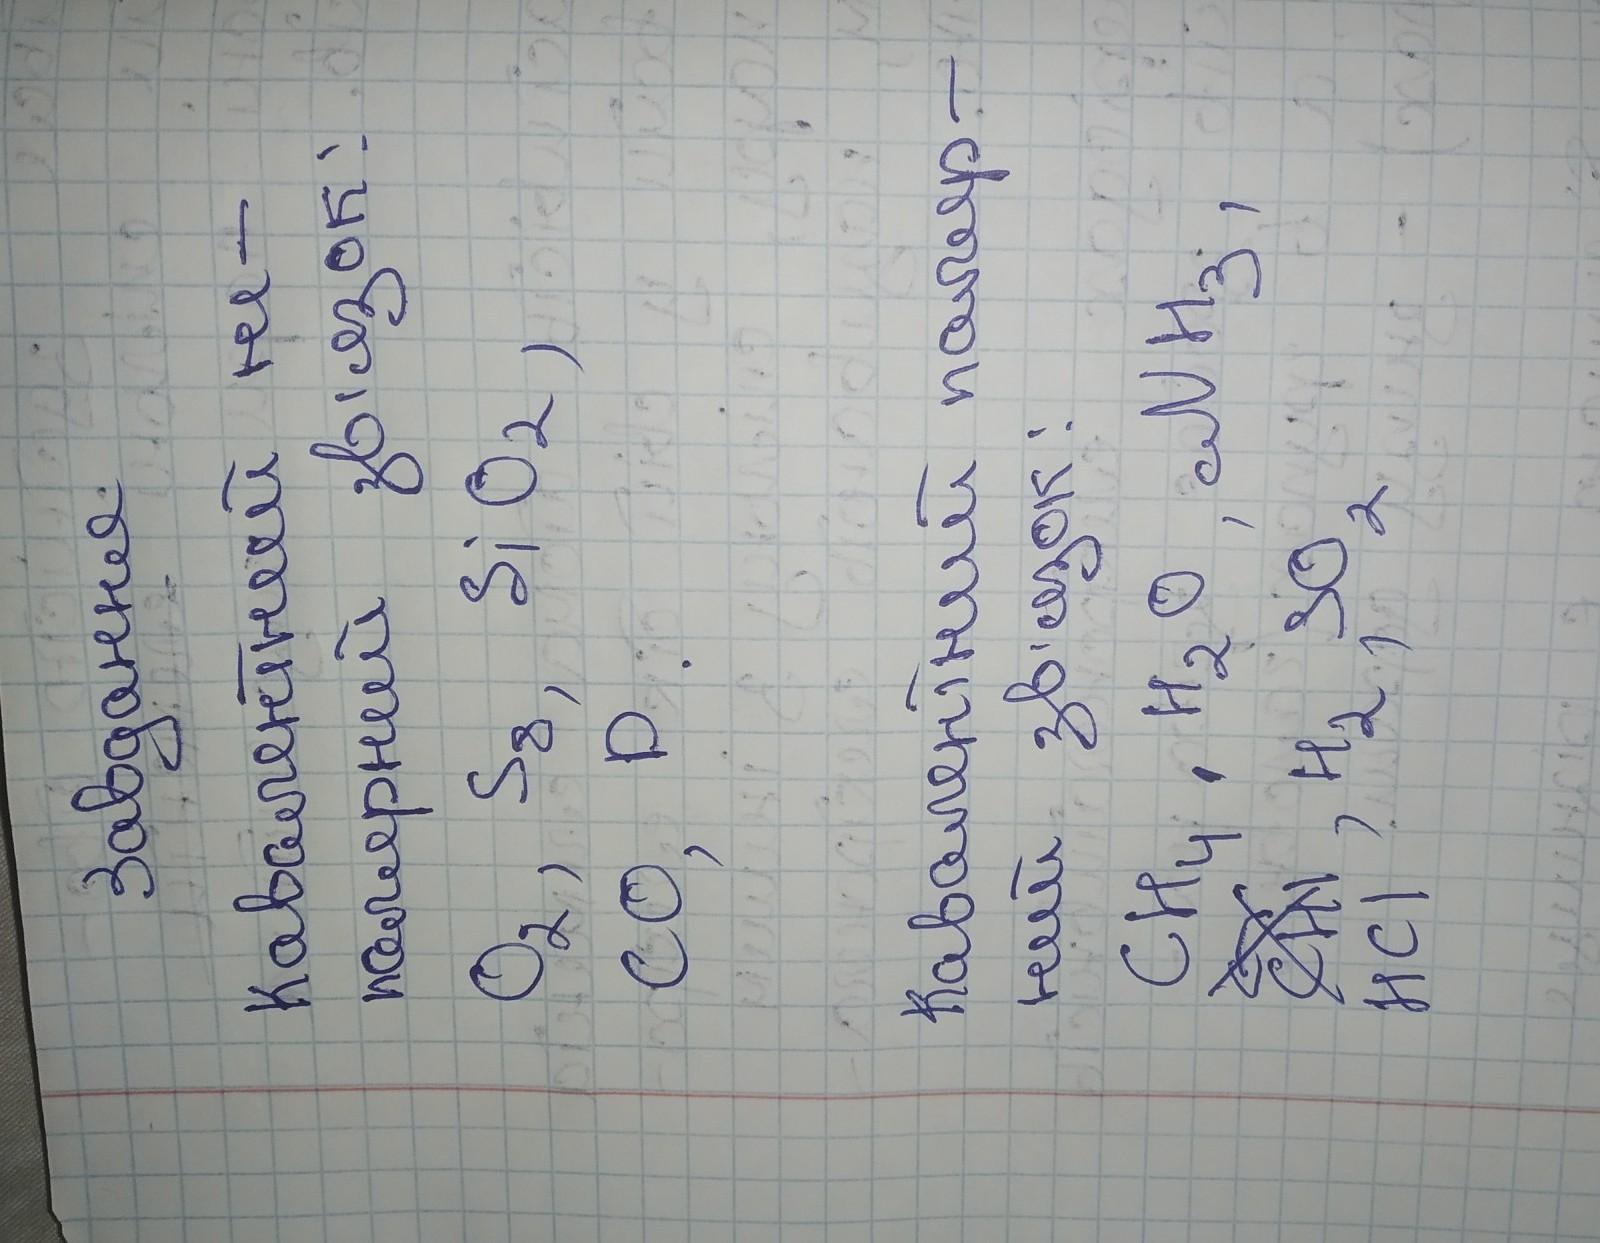 Завдання
Ковалентний не-
полярний зв'язок:
O2, S8, SiO2,
CO, P.
Ковалентний поляр-
ний зв'язок:
CH4, H2O, NH3,
HCl, H2, SO2